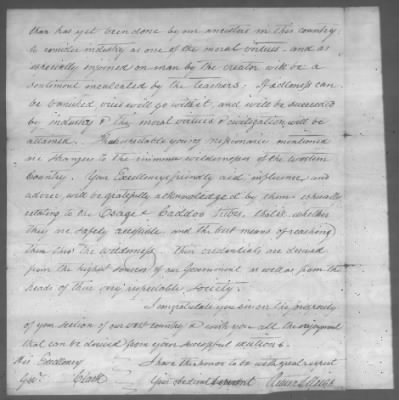 than has yet been done by our ancestors in this country,
to consider industry as one of the moral virtues - and as
especially enjoined on man by the creator will be a
sentiment inculcated by the teachers. If idleness can
be banished vices will go with it, and will be succeeded
by industry & the moral virtues & civilization will be
attained. These respectable young missionaries mentioned
are strangers to the immense wildernesses of the western
Country. Your Excellencys friendly aid, influence, and
advice, will be gratefully acknowledged by them especially
relating to the Osage & Caddos Tribes, that is, whether
they are safely accessible and the best means of reaching
them thro' the wilderness. Their credentials are derived
from the highest sources of our Government as well as from the
heads of their very respectable Society.
I congratulate you sir on the prosperity
of your section of our vast country & wish you all the enjoyment
that can be derived from your successful exertions.
His Excellency I have the honor to be with great respect
Gov. Clark Your obedient servant